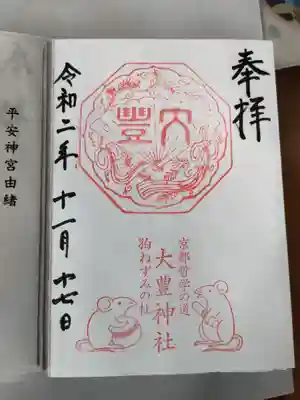 奉拝
大豐
京都哲学の道
大豊神社
狛ねずみの社
令和二年 十一月 十七日
平安神宮由緒